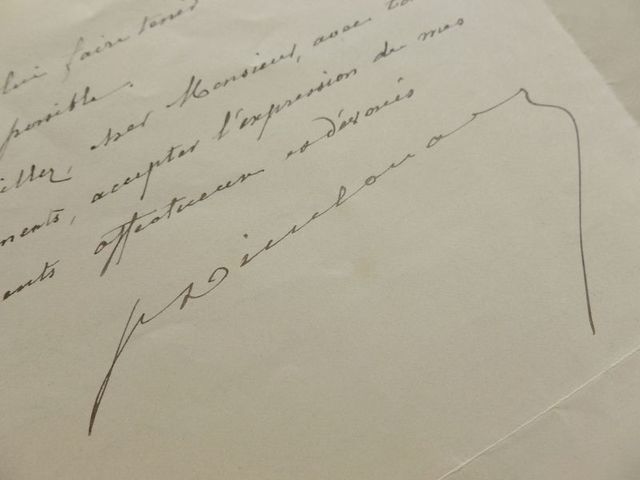 lui faire tenir
possible.
illez, cher Monsieur, avec
ments, accepter l'expression de mes
ents affectueux et dévoués
Dieulafoy